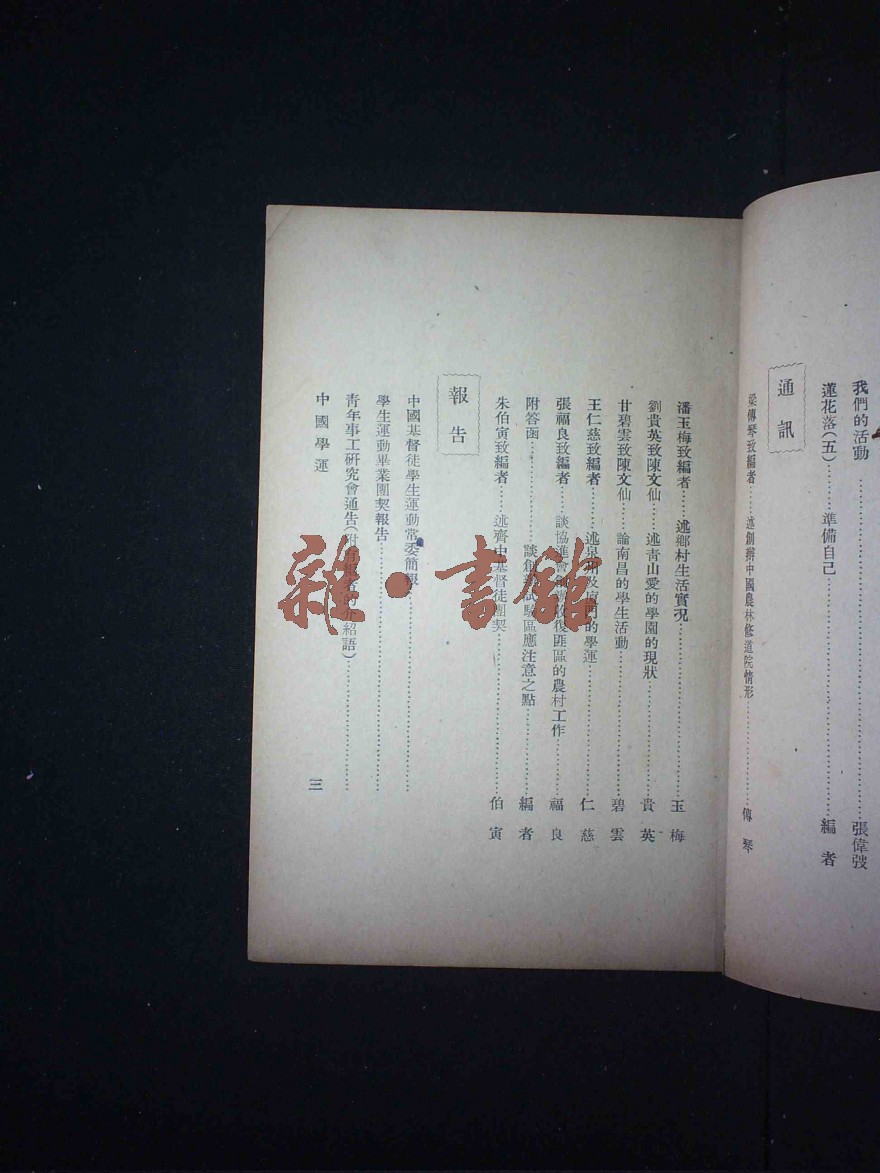 我們的活動……張偉弢
蓮花落(五)……準備自己……編者
通訊
梁傳琴致編者……述創辦中國農林修道院情形……傳琴
潘玉梅致編者……述鄉村生活實況……玉梅
劉貴英致陳文仙……述青山愛的學園的現狀……貴英
甘碧雲致陳文仙……論南昌的學生活動……碧雲
王仁慈致編者……述泉州及廈門的學運……仁慈
張福良致編者……談協進會 收復匪區的農村工作……福良
附答函……談創 試驗區應注意之點……編者
朱伯寅致編者……述齊中基督徒團契……伯寅
報告
中國基督徒學生運動常委簡報……
學生運動畢業團契報告……
青年事工研究會通告(附 的介紹語)……
中國學運
三
雜·書館